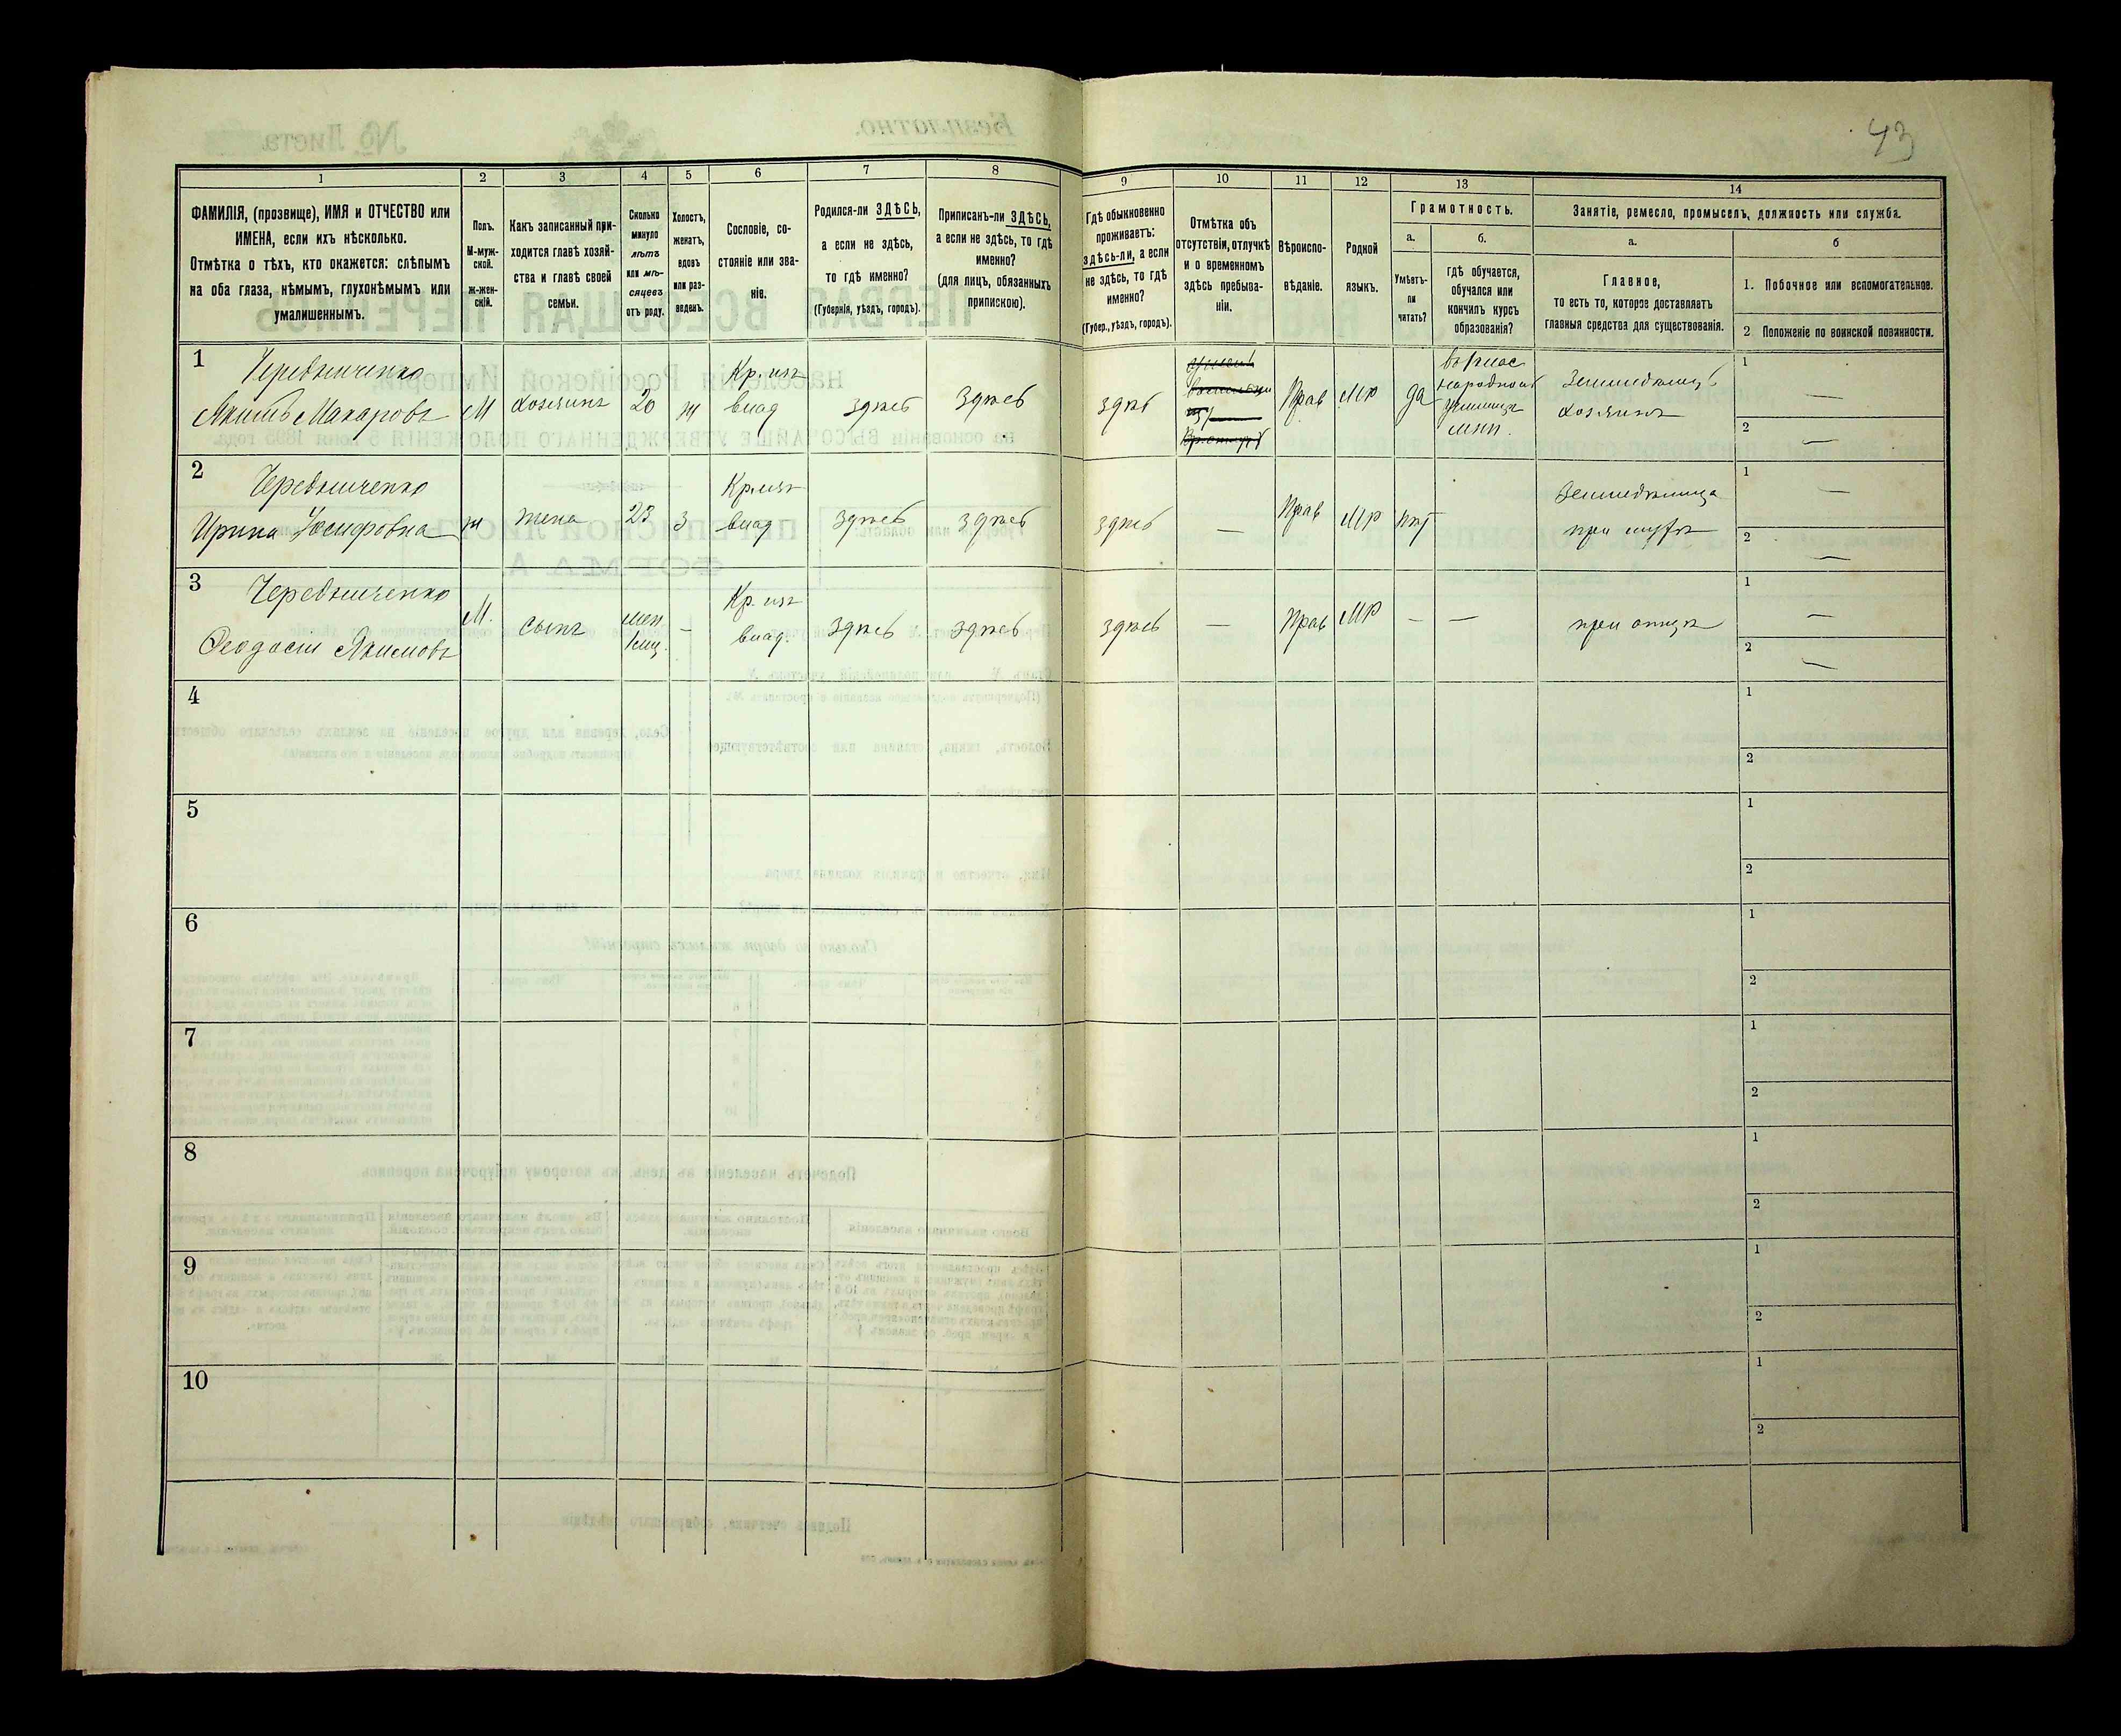 43
1
2
3
4
5
6
7
8
9
10
11
12
13
14
ФАМИЛІЯ, (прозвище), ИМЯ и ОТЧЕСТВО или
ИМЕНА, если ихъ нѣсколько.
Отмѣтка о тѣхъ, кто окажется: слѣпымъ
на оба глаза, нѣмымъ, глухонѣмымъ или
умалишеннымъ.
Полъ.
М-муж-
ской.
ж-жен-
скій.
Какъ записанный при-
ходится главѣ хозяй-
ства и главѣ своей
семьи.
Сколько
минуло
лѣтъ
или мѣ-
сяцевъ
отъ роду.
Холостъ,
женатъ,
вдовъ
или раз-
веденъ.
Сословіе, со-
стояніе или зва-
ніе.
Родился-ли ЗДѢСЬ,
а если не здѣсь,
то гдѣ именно?
(Губернія, уѣздъ, городъ).
Приписанъ-ли ЗДѢСЬ,
а если не здѣсь, то гдѣ
именно?
(для лицъ, обязанныхъ
припискою).
Гдѣ обыкновенно
проживаетъ:
здѣсь-ли, а если
не здѣсь, то гдѣ
именно?
(Губер., уѣздъ, городъ).
Отмѣтка объ
отсутствіи, отлучкѣ
и о временномъ
здѣсь пребыва-
ніи.
Вѣроиспо-
вѣданіе.
Родной
языкъ.
Грамотность.
а.
Умѣетъ-
ли
читать?
б.
гдѣ обучается,
обучался или
кончилъ курсъ
образованія?
Занятіе, ремесло, промыселъ, должность или служба.
а.
Главное,
то есть то, которое доставляетъ
главныя средства для существованія.
б
1. Побочное или вспомогательное.
2 Положеніе по воинской повинности.
1
Чередниченко
Якимъ Макаровъ
М
хозяинъ
20
ж
Кр. изъ
влад
здѣсь
здѣсь
здѣсь
Прав
МР
да
народномъ
училищѣ
Земледѣлецъ
хозяинъ
1 —
2 —
2
Чередниченко
Ирина Іосифовна
ж
жена
23
з
Кр. изъ
влад
здѣсь
здѣсь
здѣсь
—
Прав
МР
нѣт
Земледѣлица
при мужѣ
1 —
2 —
3
Чередниченко
Феодосій Якимовъ
М.
сынъ
—
Кр. изъ
влад.
здѣсь
здѣсь
здѣсь
—
Прав
МР
—
—
при отцѣ
1 —
2 —
4
1
2
5
1
2
6
1
2
7
1
2
8
1
2
9
1
2
10
1
2